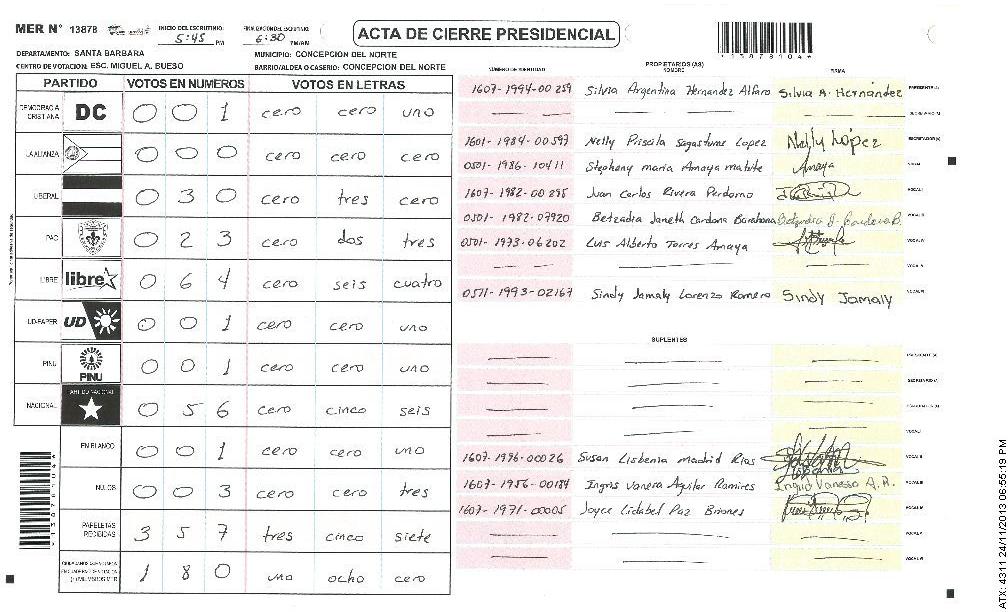 MER N° 13878 INICIO DEL ESCRUTINIO 5:45 PM FINALIZACION DEL ESCRUTINIO 6:30 PM/AM
ACTA DE CIERRE PRESIDENCIAL
*13878104*
DEPARTAMENTO: SANTA BARBARA MUNICIPIO: CONCEPCION DEL NORTE
CENTRO DE VOTACION: ESC. MIGUEL A. BUESO BARRIO/ALDEA O CASERIO: CONCEPCION DEL NORTE
PARTIDO VOTOS EN NUMEROS VOTOS EN LETRAS
DEMOCRACIA CRISTIANA DC 0 0 1 cero cero uno
LA ALIANZA 0 0 0 cero cero cero
LIBERAL 0 3 0 cero tres cero
PAC 0 2 3 cero dos tres
LIBRE libre 0 6 4 cero seis cuatro
UD-FAPER UD 0 0 1 cero cero uno
PINU PINU 0 0 1 cero cero uno
NACIONAL PARTIDO NACIONAL 0 5 6 cero cinco seis
EN BLANCO 0 0 1 cero cero uno
NULOS 0 0 3 cero cero tres
PAPELETAS RECIBIDAS 3 5 7 tres cinco siete
1 8 0 uno ocho cero
NÚMERO DE IDENTIDAD PROPIETARIOS (AS) NOMBRE FIRMA
1607-1994-00259 Silvia Argentina Hernandez Alfaro Silvia A. Hernández PRESIDENTE(A)
SECRETARIO(A)
1601-1984-00597 Nelly Priscila Sagastume Lopez Nelly López ESCRUTADOR(A)
0501-1986-10411 Stephany maria Amaya matute Amaya VOCAL I
1607-1982-00295 Juan Carlos Rivera Perdomo
0501-1982-07920 Betzadia Janeth Cardona Barahona
0501-1973-06202 Luis Alberto Torres Amaya VOCAL IV
VOCAL V
0511-1993-02167 Sindy Jamaly Lorenzo Romero Sindy Jamaly
SUPLENTES
PRESIDENTE(A)
SECRETARIO(A)
ESCRUTADOR(A)
VOCAL I
1607-1996-00026 Susan Lisbenia Madrid Rios VOCAL II
1607-1956-00184 Ingris Vanera Aguilar Ramires Ingrid Vanessa A. R. VOCAL III
1607-1971-00005 Joyce Lidabel Paz Briones VOCAL IV
VOCAL V
VOCAL VI
*13878104*
ATX: 4311 24/11/2013 06:55:19 PM